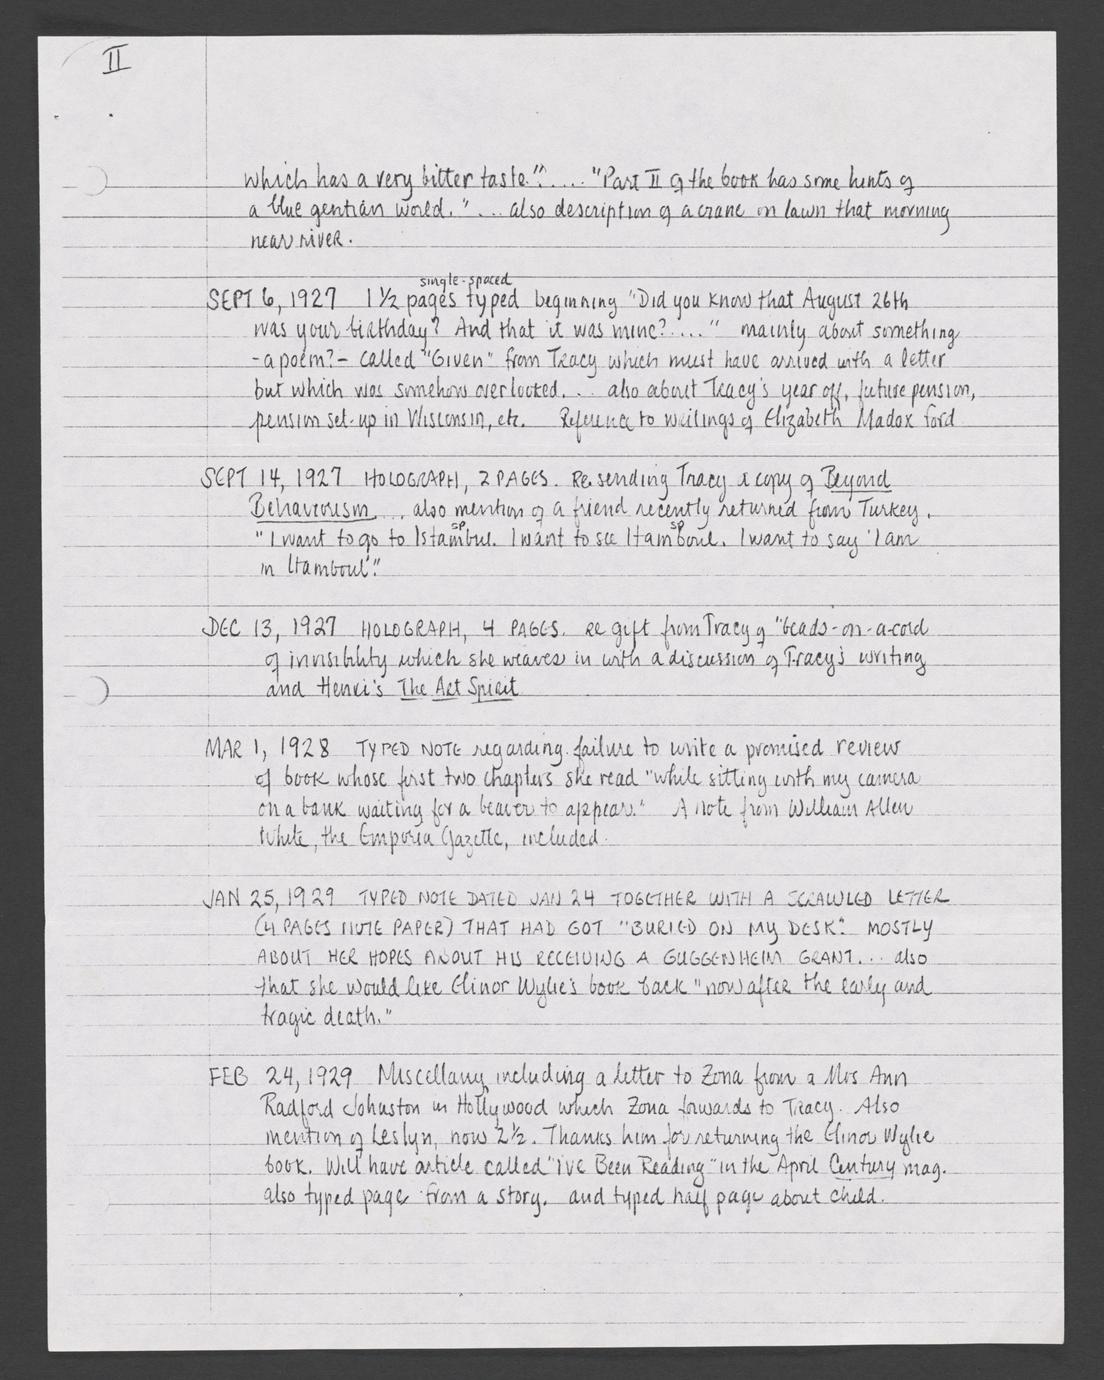 II
which has a very bitter taste.". . . . "Part II of the book has some hints of
a blue gentian world." . . . also description of a crane on lawn that morning
near river.
single-spaced
SEPT 6, 1927 1 1/2 pages typed beginning "Did you know that August 26th
was your birthday? And that it was mine?. . . . " mainly about something
- a poem? - called "Given" from Tracy which must have arrived with a letter
but which was somehow overlooked. . . also about Tracy's year off, future pension,
pension set-up in Wisconsin, etc. Reference to writings of Elizabeth Madox Ford
SEPT 14, 1927 HOLOGRAPH, 2 PAGES. Re sending Tracy a copy of Beyond
Behaviorism. . . also mention of a friend recently returned from Turkey.
sp sp
"I want to go to Istambul. I want to see Itamboul. I want to say 'I am
in Itamboul'."
DEC 13, 1927 HOLOGRAPH, 4 PAGES. Re gift from Tracy of "beads-on-a-cord
of invisibility which she weaves in with a discussion of Tracy's writing
and Henri's The Art Spirit
MAR 1, 1928 TYPED NOTE regarding failure to write a promised review
of book whose first two chapters she read "while sitting with my camera
on a bank waiting for a beaver to appear." A note from William Allen
White, the Emporia Gazette, included.
JAN 25, 1929 TYPED NOTE DATED JAN 24 TOGETHER WITH A SCRAWLED LETTER
(4 PAGES NOTE PAPER) THAT HAD GOT "BURIED ON MY DESK." MOSTLY
ABOUT HER HOPES ABOUT HIS RECEIVING A GUGGENHEIM GRANT. . . also
that she would like Elinor Wylie's book back "now after the early and
tragic death."
FEB 24, 1929 Miscellany including a letter to Zona from a Mrs Ann
Radford Johnston in Hollywood which Zona forwards to Tracy. Also
mention of Leslyn, now 2 1/2. Thanks him for returning the Elinor Wylie
book. Will have article called "I've Been Reading" in the April Century mag.
also typed page from a story. and typed half page about child.